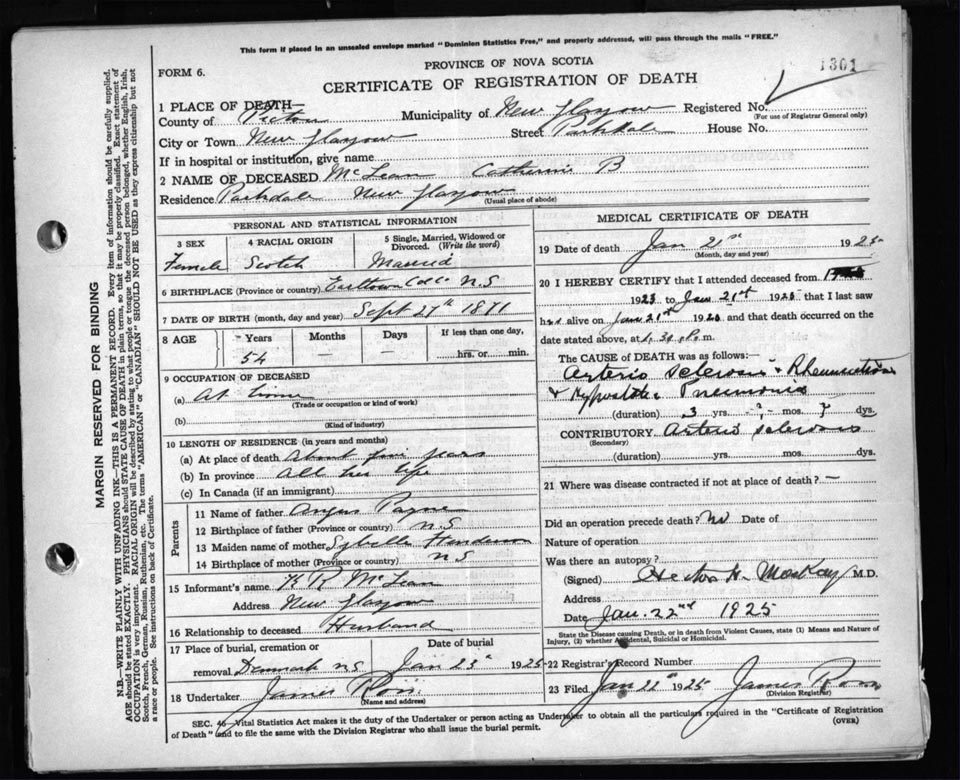 This form if placed in an unsealed envelope marked "Dominion Statistics Free," and properly addressed, will pass through the mails "FREE."
PROVINCE OF NOVA SCOTIA
1301
FORM 6.
CERTIFICATE OF REGISTRATION OF DEATH
1 PLACE OF DEATH
County of Pictou Municipality of New Glasgow Registered No.
(For use of Registrar General only)
City or Town New Glasgow Street Parkdale House No.
If in hospital or institution, give name
2 NAME OF DECEASED McLean Catherine B
Residence Parkdale New Glasgow
(Usual place of abode)
PERSONAL AND STATISTICAL INFORMATION
3 SEX 4 RACIAL ORIGIN 5 Single, Married, Widowed or Divorced. (Write the word)
Female Scotch Married
6 BIRTHPLACE (Province or country) Earltown Col Co N.S
7 DATE OF BIRTH (month, day and year) Sept 27th 1871
8 AGE Years Months Days If less than one day,
54 — — hrs. or min.
9 OCCUPATION OF DECEASED
(a) At home
(Trade or occupation or kind of work)
(b)
(Kind of industry)
10 LENGTH OF RESIDENCE (in years and months)
(a) At place of death About five years
(b) In province All her life
(c) In Canada (if an immigrant)
Parents
11 Name of father Angus Payne
12 Birthplace of father (Province or country) N.S
13 Maiden name of mother Sybella Henderson
14 Birthplace of mother (Province or country) N S
15 Informant's name K R McLean
Address New Glasgow
16 Relationship to deceased Husband
17 Place of burial, cremation or Date of burial
removal Denmark N.S Jan 23d 1925
18 Undertaker James Ross
(Name and address)
MEDICAL CERTIFICATE OF DEATH
19 Date of death Jan 21st 1925
(Month, day and year)
20 I HEREBY CERTIFY that I attended deceased from
1923 to Jan 21st 1925 that I last saw
her alive on Jan 21st 1925 and that death occurred on the
date stated above, at m.
The CAUSE OF DEATH was as follows:
Arterio Sclerosis & Rheumatism
& Hypostatic Pneumonia
(duration) 3 yrs. mos. 7 dys.
CONTRIBUTORY Arterio Sclerosis
(Secondary)
(duration) yrs. mos. dys.
21 Where was disease contracted if not at place of death? —
Did an operation precede death? No Date of
Nature of operation
Was there an autopsy?
(Signed) Hector H. MacKay M.D.
Address
Date Jan. 22nd 1925
State the Disease causing Death, or in death from Violent Causes, state (1) Means and Nature of
Injury, (2) whether Accidental, Suicidal or Homicidal.
22 Registrar's Record Number
23 Filed Jan 22d 1925 James Ross
(Division Registrar)
SEC. 46—Vital Statistics Act makes it the duty of the Undertaker or person acting as Undertaker to obtain all the particulars required in the "Certificate of Registration
of Death" and to file the same with the Division Registrar who shall issue the burial permit. (OVER)
MARGIN RESERVED FOR BINDING
N.B.—WRITE PLAINLY WITH UNFADING INK—THIS IS A PERMANENT RECORD. Every item of information should be carefully supplied.
AGE should be stated EXACTLY. PHYSICIANS should STATE CAUSE OF DEATH in plain terms, so that it may be properly classified. Exact statement of
OCCUPATION is very important. RACIAL ORIGIN will be described by stating to what people or tongue the deceased person belonged, whether English, Irish,
Scotch, French, German, Russian, Ruthenian, etc. The terms "AMERICAN" or "CANADIAN" SHOULD NOT BE USED as they express citizenship but not
a race or people. See instructions on back of Certificate.